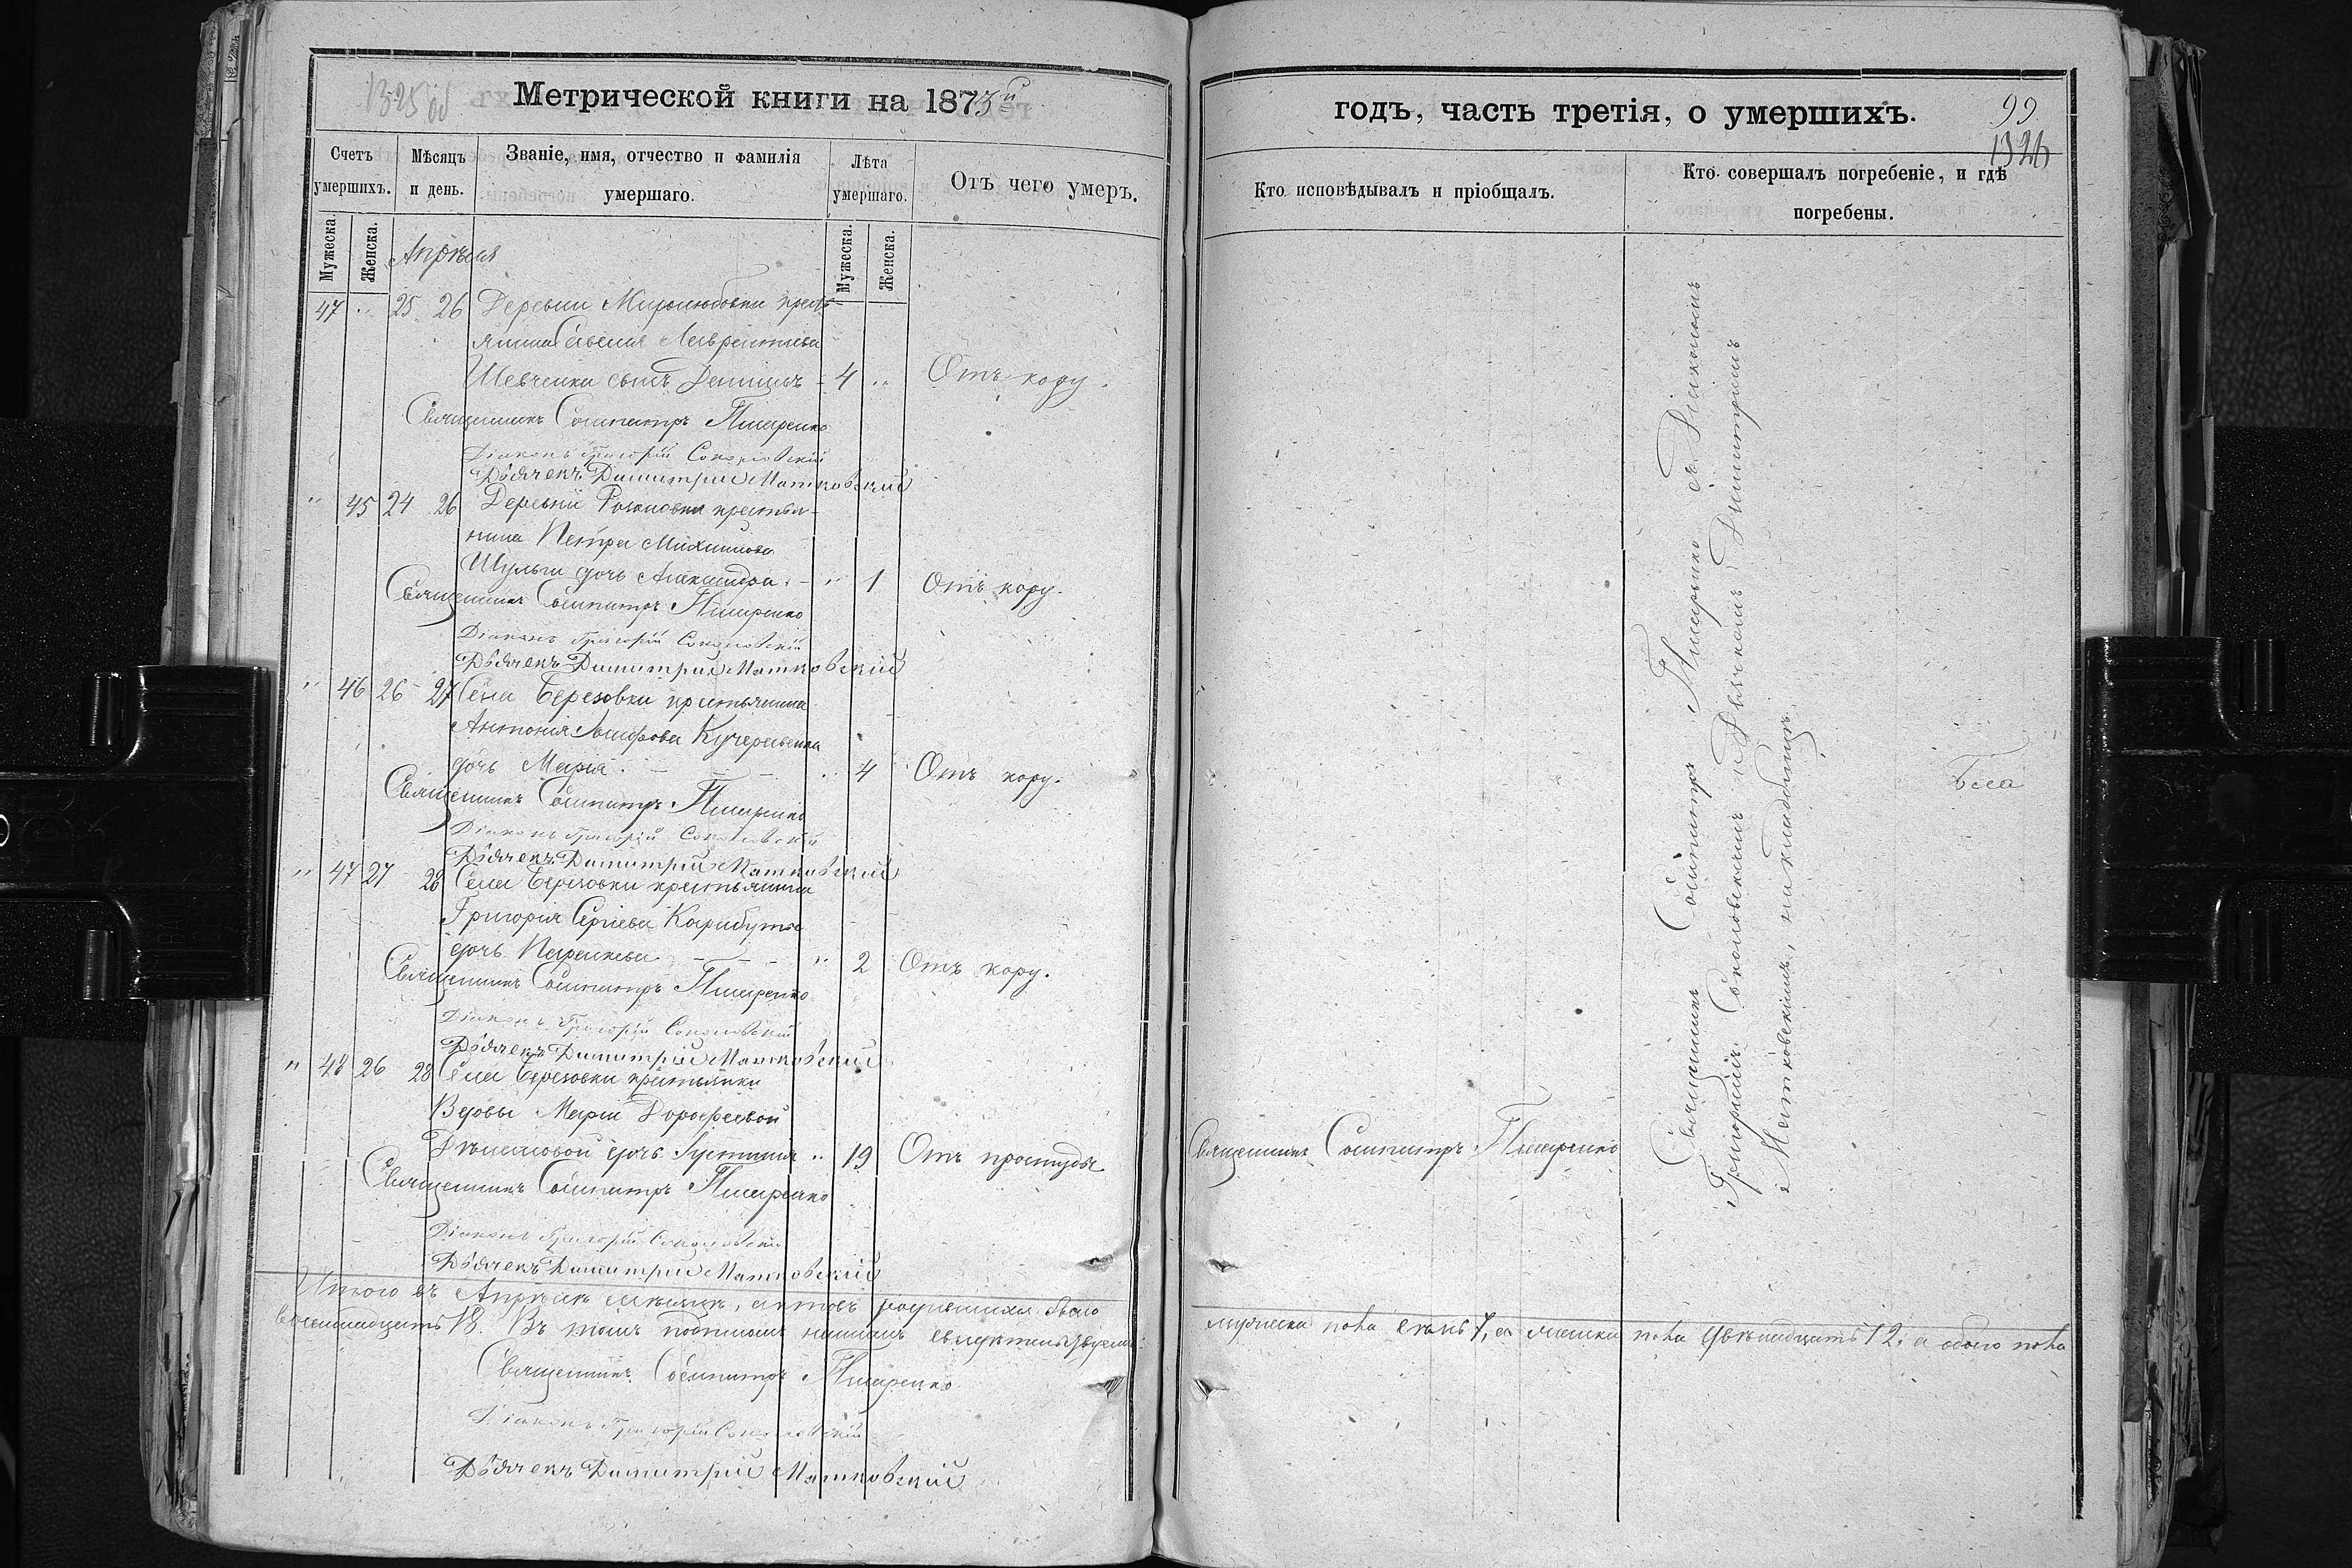 1325 об
Метрической книги на 1873й
годъ, часть третія, о умершихъ.
99
1326
Счетъ умершихъ.
Мѣсяцъ и день.
Званіе, имя, отчество и фамилія умершаго.
Лѣта умершаго.
Отъ чего умеръ.
Кто исповѣдывалъ и пріобщалъ.
Кто совершалъ погребеніе, и гдѣ погребены.
Мужеска.
Женска.
Мужеска.
Женска.
Апрѣля
47 " 25 26 Деревни Миролюбовки кресть-
янина Савелія Лаврентіева
Шевченка сынъ Діонисій - 4 " Отъ кору.
Священникъ Сосипатръ Писаренко
Діаконъ Григорій Соколовскій
Дьячекъ Димитрій Матковскій
" 45 24 26 Деревни крестья-
нина Петра
Шульги дочь Александра. - " 1 Отъ кору.
Священникъ Сосипатръ Писаренко
Діаконъ Григорій Соколовскій
Дьячекъ Димитрій Матковскій
" 46 26 27 Села Березовки крестьянина
Антонія Кучеревенка
дочь Марія. - - - " 4 Отъ кору.
Священникъ Сосипатръ Писаренко
Діаконъ Григорій Соколовскій
Дьячекъ Димитрій Матковскій
" 47 27 28 Села Березовки крестьянина
Григорія Сергіева Карибута
дочь Параскева - - - " 2 Отъ кору.
Священникъ Сосипатръ Писаренко
Діаконъ Григорій Соколовскій
Дьячекъ Димитрій Матковскій
" 48 26 28 Села Березовки крестьянки
Вдовы Маріи Дорофеевой
дочь Іустинія " 19 Отъ простуды
Священникъ Сосипатръ Писаренко
Священникъ Сосипатръ Писаренко
Діаконъ Григорій Соколовскій
Дьячекъ Димитрій Матковскій
Священникъ Сосипатръ Писаренко съ Діакономъ
Григоріемъ Соколовскимъ и Дьячкомъ Димитріемъ
Матковскимъ, на кладбищѣ
Итого въ Апрѣлѣ мѣсяцѣ, актовъ мужеска пола семь 7, а женска пола двѣнадцать 12, а обоего пола
18. Въ томъ подписомъ нашимъ свидѣтельствуемъ:
Священникъ Сосипатръ Писаренко
Діаконъ Григорій Соколовскій
Дьячекъ Димитрій Матковскій